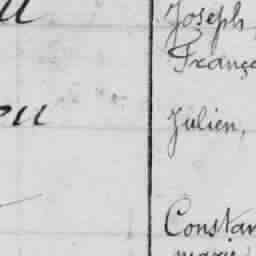 Joseph
Franç
Julien,
Constan
marie